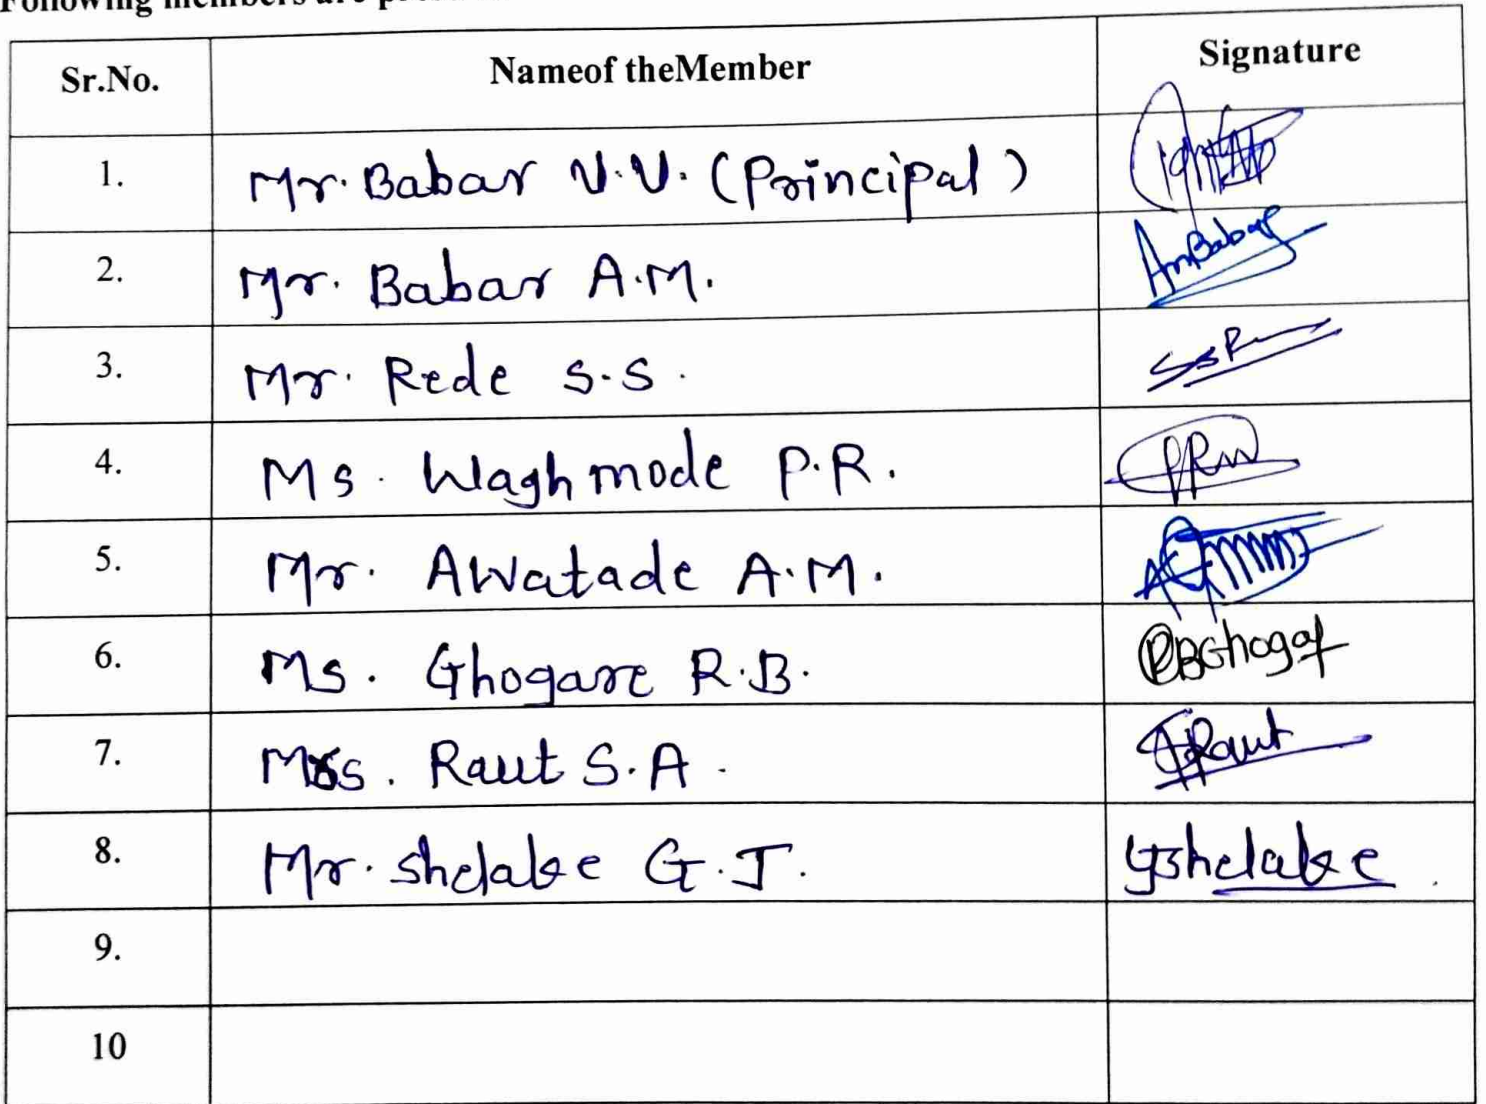 Following members are
Sr.No. Nameof theMember Signature
1. Mr. Babar V.V. (Principal)
2. Mr. Babar A.M. AmBabar
3. Mr. Rede S.S.
4. Ms. Waghmode P.R.
5. Mr. Awatade A.M.
6. Ms. Ghogare R.B. RBGhogar
7. Mrs. Raut S.A. Raut
8. Mr. Shelake G.J. GShelake
9.
10